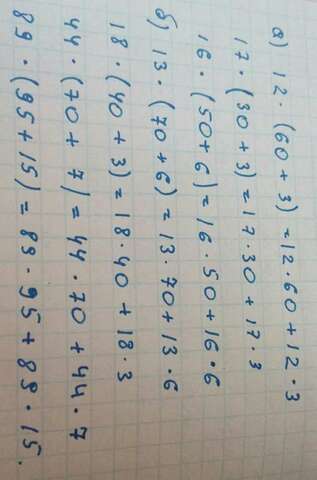 а) 12 · (60 + 3) = 12 · 60 + 12 · 3
17 · (30 + 3) = 17 · 30 + 17 · 3
16 · (50 + 6) = 16 · 50 + 16 · 6
б) 13 · (70 + 6) = 13 · 70 + 13 · 6
18 · (40 + 3) = 18 · 40 + 18 · 3
44 · (70 + 7) = 44 · 70 + 44 · 7
89 · (95 + 15) = 89 · 95 + 89 · 15.